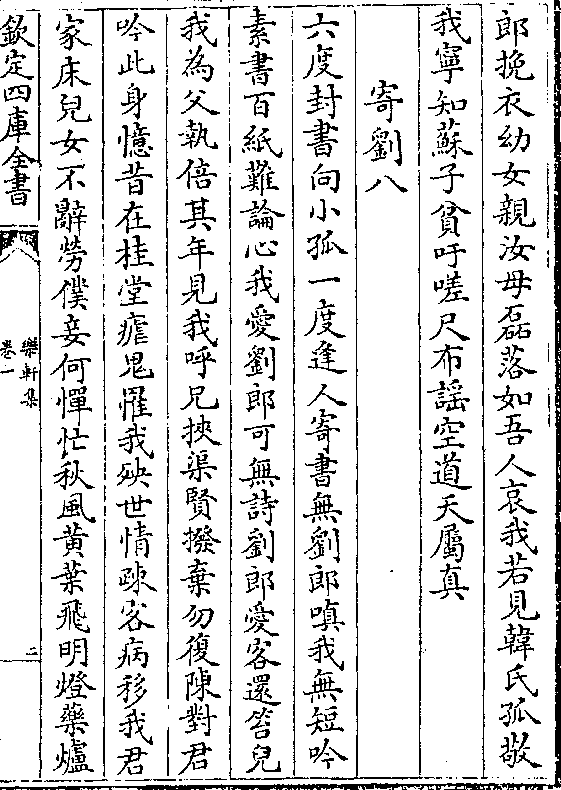 郎挽衣幼女親汝母磊落如吾人哀我若見韓氏孤敬
我寧知蘇子貧吁嗟尺布謡空道天屬真
寄劉八
六度封書向小孤一度逢人寄書無劉郎嗔我無短吟
素書百紙難論心我愛劉郎可無詩劉郎愛客還答兒
我為父執倍其年見我呼兄挾渠賢撥棄勿復陳對君
吟此身憶昔在桂堂瘧鬼罹我殃世情疎客病移我君
家床兒女不辭勞僕妾何憚忙秋風黄葉飛明燈藥爐
欽定四庫全書
樂軒集
卷一
二